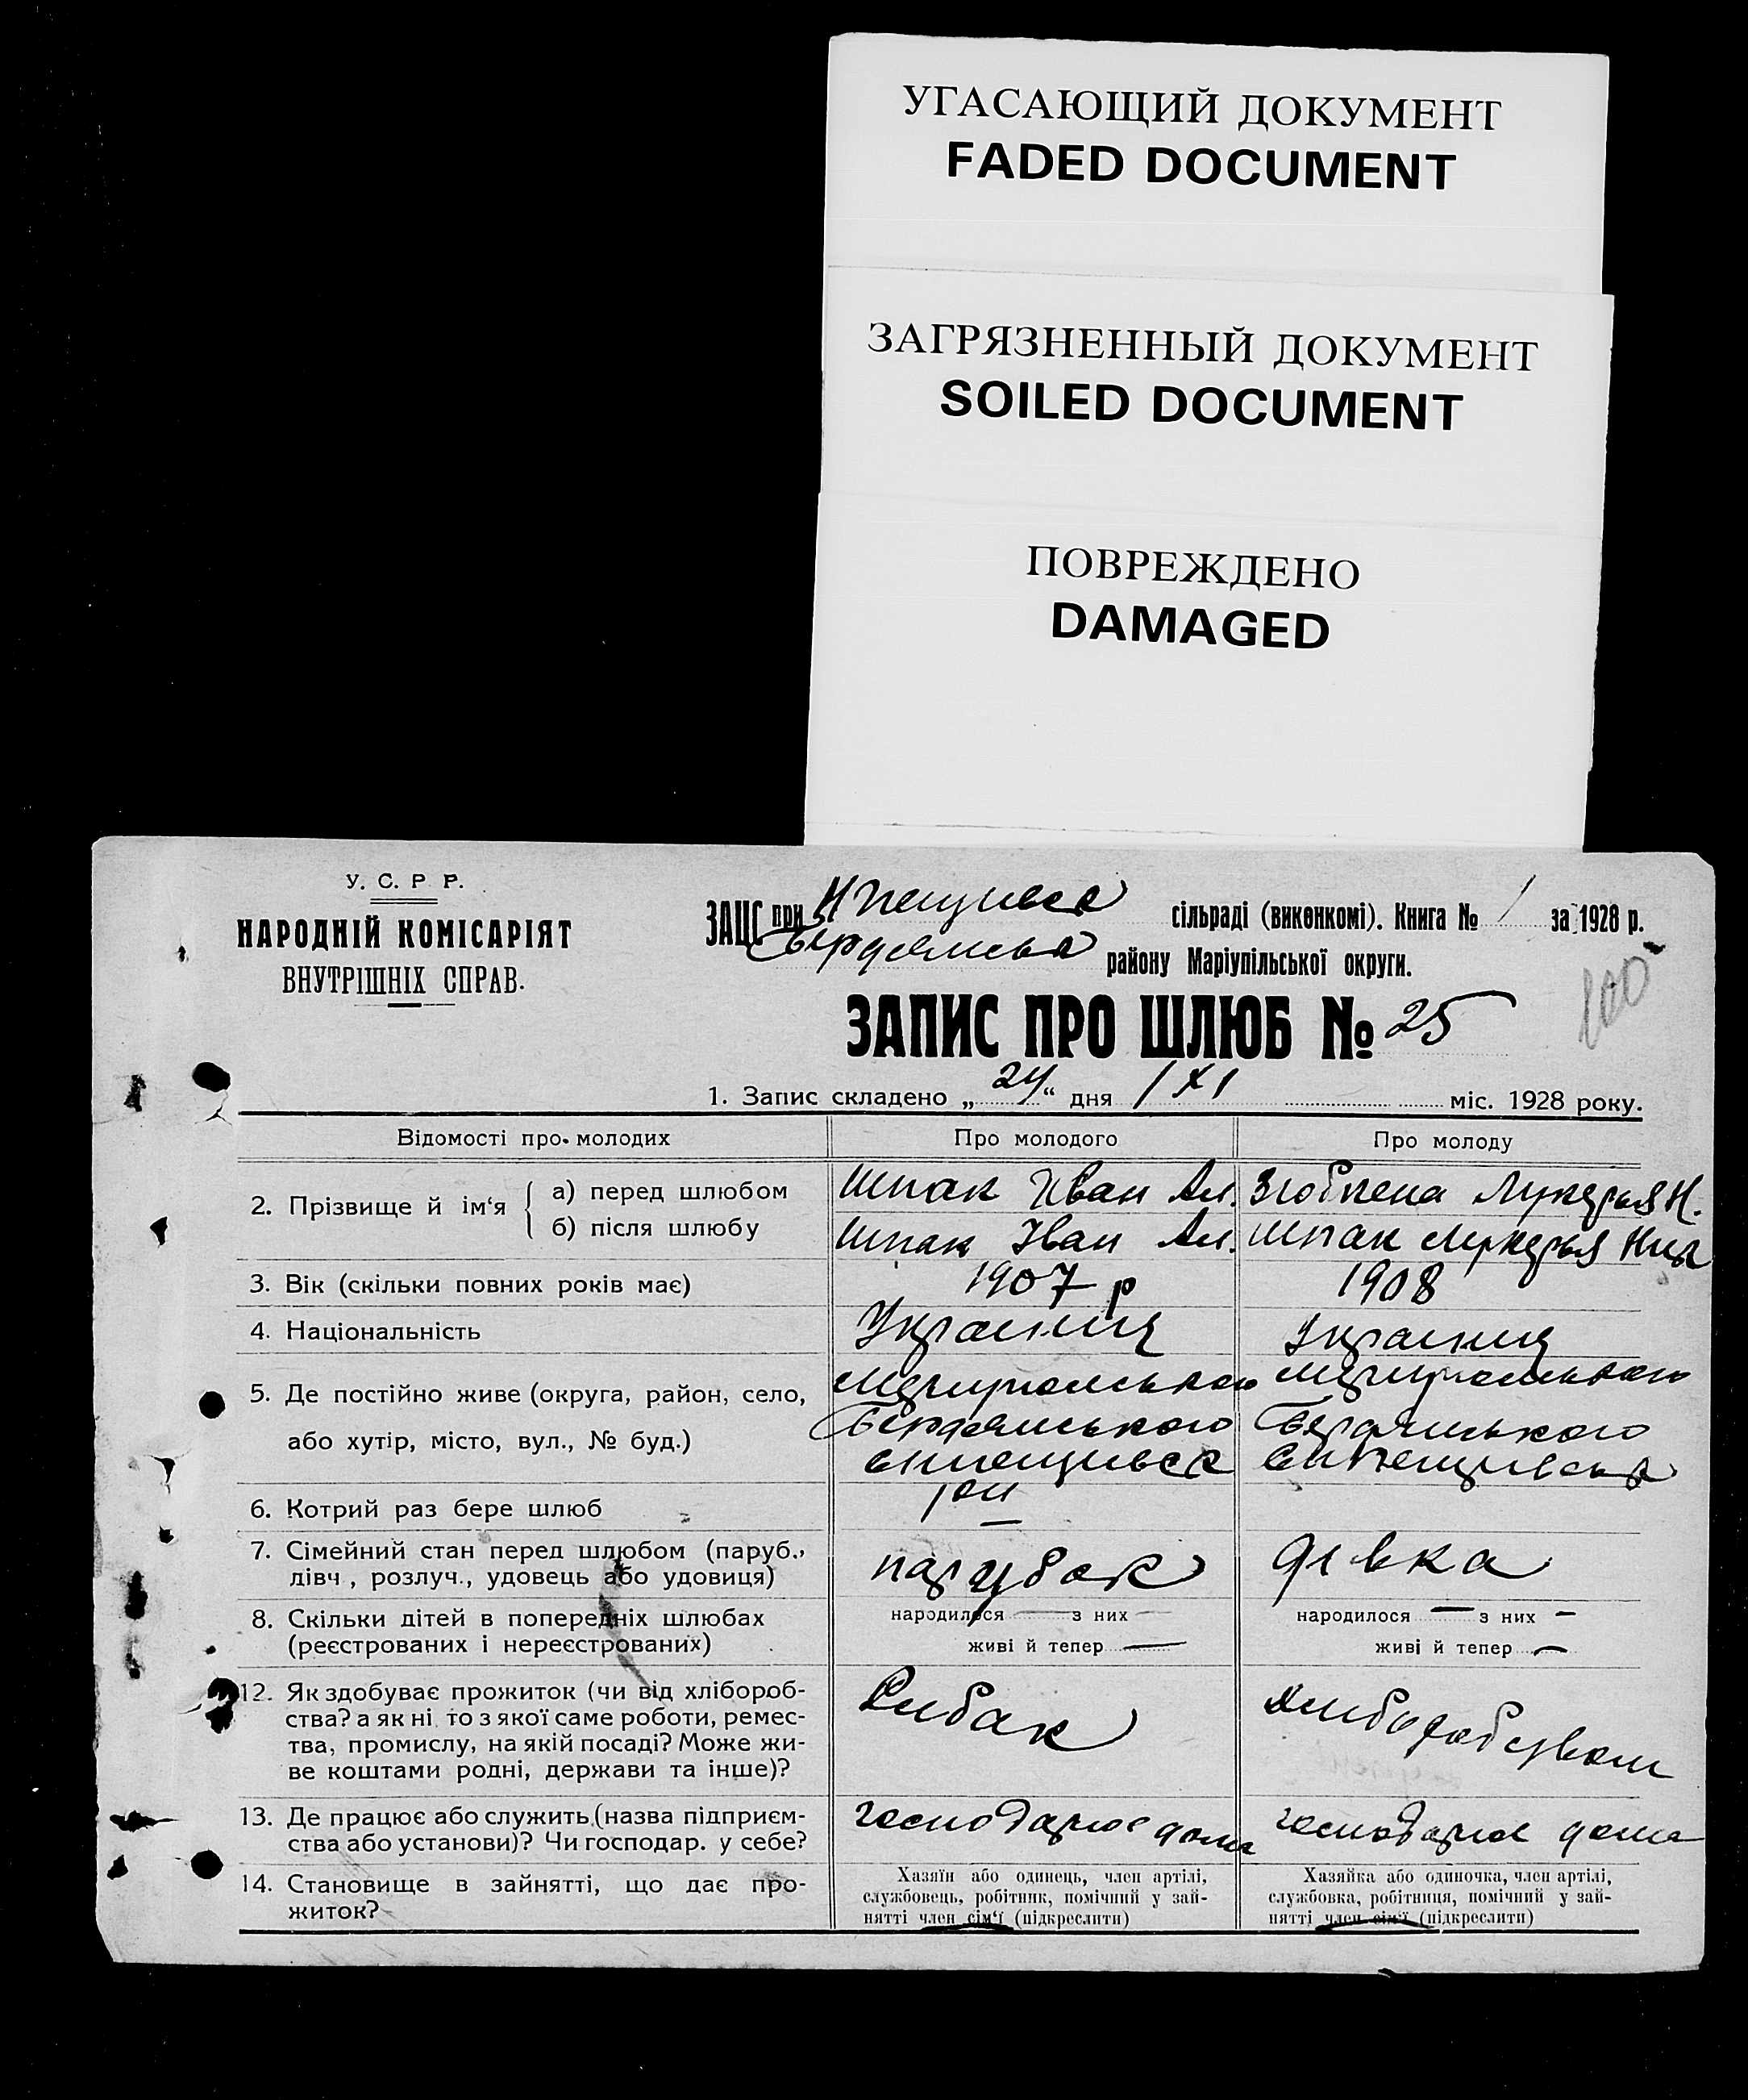 УГАСАЮЩИЙ ДОКУМЕНТ
FADED DOCUMENT
ЗАГРЯЗНЕННЫЙ ДОКУМЕНТ
SOILED DOCUMENT
ПОВРЕЖДЕНО
DAMAGED
У. С. Р Р.
НАРОДНІЙ КОМІСАРІЯТ
ВНУТРІШНІХ СПРАВ.
ЗАЦС при сільраді (виконкомі). Книга № 1 за 1928 р.
району Маріупільської округи.
100
ЗАПИС ПРО ШЛЮБ № 25
1. Запис складено „24“ дня XI міс. 1928 року.
Відомості про молодих
Про молодого
Про молоду
2. Прізвище й ім‘я { а) перед шлюбом
Шпак Іван Ан.
Лукерья Н.
б) після шлюбу
Шпак Іван Ан.
Шпак Лукерья
3. Вік (скільки повних років має)
1907 р
1908
4. Національність
Украинц
Украинц
5. Де постійно живе (округа, район, село,
або хутір, місто, вул., № буд.)
Бердянського
Бердянського
6. Котрий раз бере шлюб
7. Сімейний стан перед шлюбом (паруб.,
дівч., розлуч., удовець або удовиця)
парубок
дівка
8. Скільки дітей в попередніх шлюбах
(реєстрованих і нереєстрованих)
народилося — з них —
живі й тепер —
народилося — з них —
живі й тепер —
12. Як здобуває прожиток (чи від хлібороб-
ства? а як ні, то з якої саме роботи, ремес-
тва, промислу, на якій посаді? Може жи-
ве коштами родні, держави та інше)?
Рибак
13. Де працює або служить (назва підприєм-
ства або установи)? Чи господар. у себе?
господарює дома
господарює дома
14. Становище в зайнятті, що дає про-
житок?
Хазяїн або одинець, член артілі,
службовець, робітник, помічний у зай-
нятті член сім‘ї (підкреслити)
Хазяйка або одиночка, член артілі,
службовка, робітниця, помічний у зай-
нятті член сім‘ї (підкреслити)